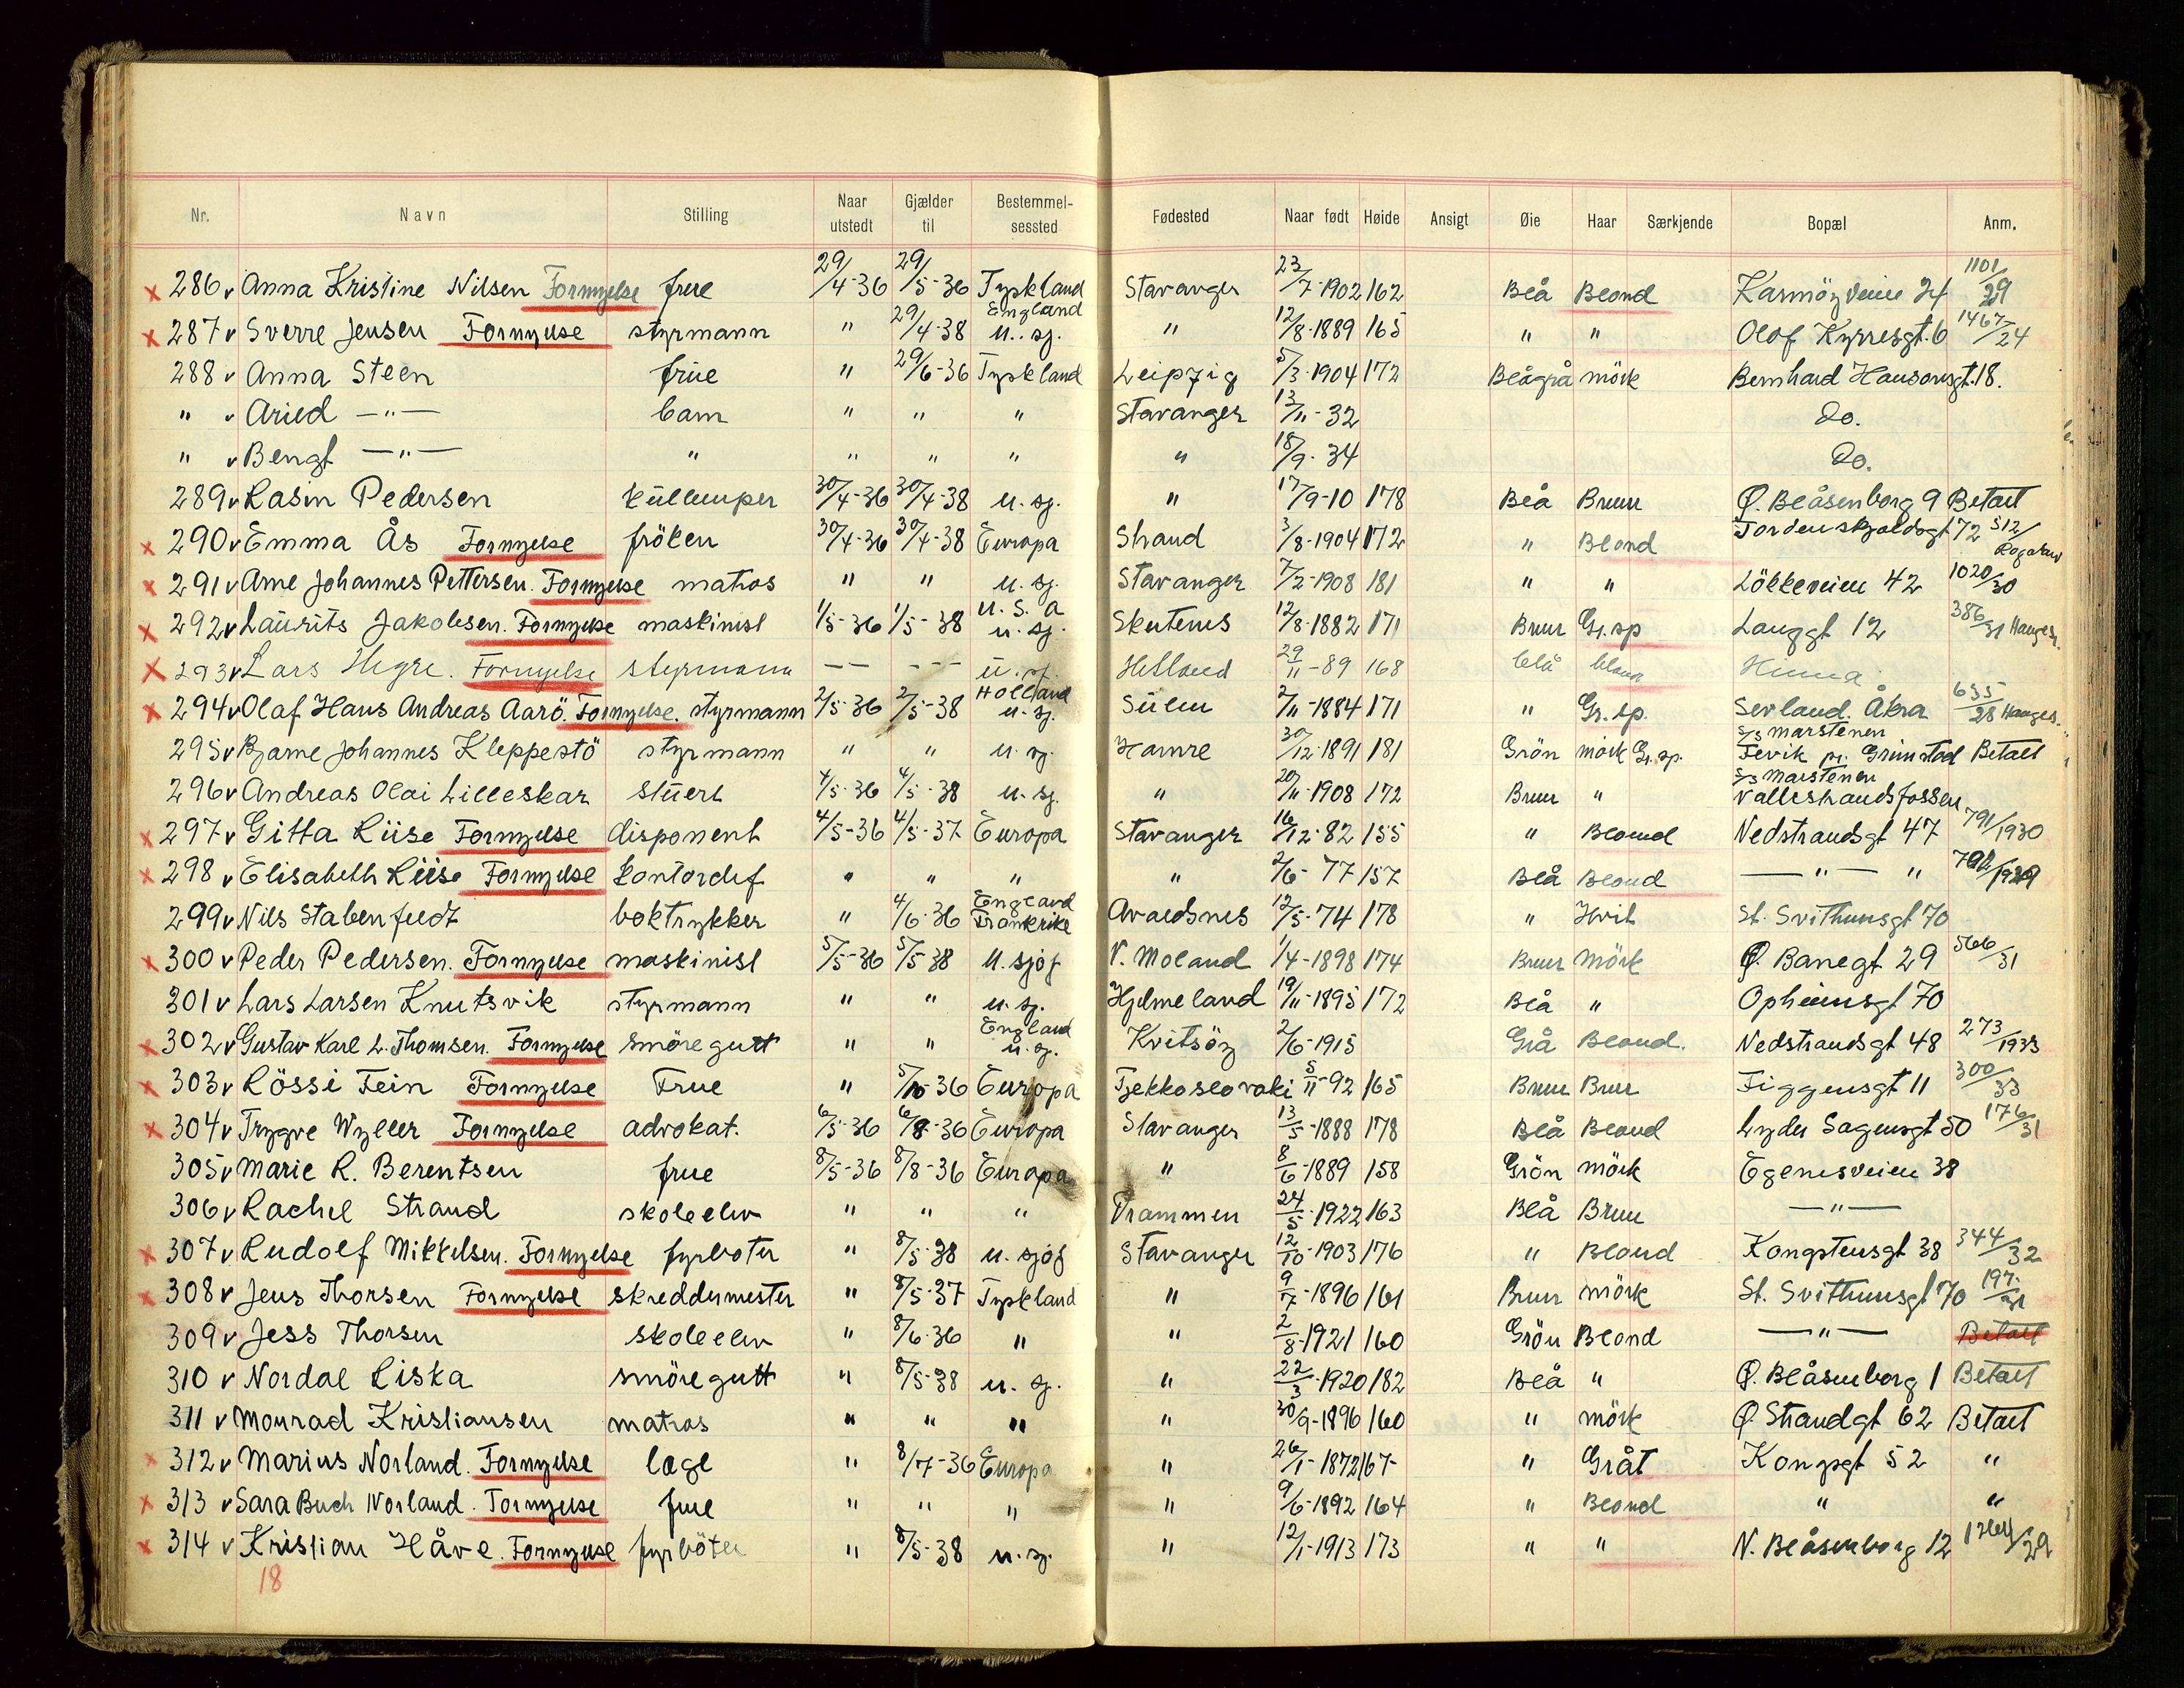 Nr. Navn Stilling Naar utstedt Gjælder til Bestemmel-sessted Fødested Naar født Høide Ansigt Øie Haar Særkjende Bopæl Anm.
x 286 v Anna Kristine Nilsen Fornyelse frue 29/4-36 29/5-36 Tyskland Stavanger 23/7-1902 162 Blå Blond Karmöyveien 24 1101/29
x 287 v Sverre Jensen Fornyelse styrmann " 29/4-38 England u. sj. " 12/8-1889 165 " " Olaf Kyrresgt. 6 1467/24
288 v Anna Steen frue " 29/6-36 Tyskland Leipzig 5/3-1904 172 Blågrå mörk Bernhard Hansonsgt. 18.
" v Arild —"— barn " " " Stavanger 13/11-32 do.
" v Bengt —"— " " " " " 18/9-34 do.
289 v Rasm Pedersen küllemper 30/4-36 30/4-38 u. sj. " 17/9-10 178 Blå Brun Ø. Blåsenborg 9 Betalt
x 290 v Emma Ås Fornyelse fröken 30/4-36 30/4-38 Europa Strand 3/8-1904 172 " Blond Tordenskjoldsgt 72 512/Rogaland
x 291 v Arne Johannes Pettersen. Fornyelse matros " " u. sj. Stavanger 7/2-1908 181 " " Lökkeveien 42 1020/30
x 292 v Laurits Jakobsen. Fornyelse maskinist 1/5-36 1/5-38 U. S. A u. sj. Skutenes 12/8-1882 171 Brun Gr. sp Langgt 12 386/31 Hauges.
x 293 v Lars Hegre. Fornyelse styrmann — — — — — u. sj. Hetland 29/11-89 168 blå blond Hinna
x 294 v Olaf Hans Andreas Aarö. Fornyelse. styrmann 2/5-36 2/5-38 Holland u. sj. Sülen 2/11-1884 171 " Gr. sp. Sevland. Åkra 635/28 Hauges.
295 v Bjarne Johannes Kleppestö styrmann " " u. sj. Hamre 30/12-1891 181 Grön mörk Gr. sp. s/s Marstenen Fevik pr. Grimstad Betalt
296 v Andreas Olai Lilleskar stüert 4/5-36 4/5-38 u. sj. " 20/11-1908 172 Brun " s/s Marstenen Vallestrandsfossen
x 297 v Gitta Riise Fornyelse disponent 4/5-36 4/5-37 Europa Stavanger 16/12-82 155 " Blond Nedstrandsgt 47 791/1930
x 298 v Elisabeth Riise Fornyelse kontordef " " " " 2/6-77 157 Blå Blond —"— "
299 v Nils Stabenfeldt boktrykker " 4/6-36 England Frankrike Avaldsnes 12/5-74 178 " Hvit St. Svithunsgt 70
x 300 v Peder Pedersen. Fornyelse maskinist 5/5-36 5/5-38 u. sjøf N. Moland 1/4-1898 174 Brun Mörk Ø. Banegt 29 566/31
301 v Lars Larsen Knutsvik styrmann " " u. sj. Hjelmeland 19/11-1895 172 Blå " Opheimsgt 70
x 302 v Gustav Karl L. Thomsen. Fornyelse smöregutt " " England u. sj. Kvitsöy 2/6-1915 Grå Blond. Nedstrandsgt 48 273/1933
x 303 v Rössi Fein Fornyelse Frue " 5/10-36 Europa Tjekkoslovaki 5/11-92 165 Brun Brun Figgensgt 11 300/33
x 304 v Trygve Wyller Fornyelse advokat. 6/5-36 6/8-36 Europa Stavanger 13/5-1888 178 Blå Blond Lyder Sagensgt 50 176/31
305 v Marie R. Berentsen frue 8/5-36 8/8-36 Europa " 8/6-1889 158 Grön mörk Egenesveien 38
306 v Rachel Strand skoleelev " " " Drammen 24/5-1922 163 Blå Brun —"—
x 307 v Rudolf Mikkelsen. Fornyelse fyrböter " 8/5-38 u. sjøf Stavanger 12/10-1903 176 " Blond Kongstensgt 38 344/32
x 308 v Jens Thorsen Fornyelse skreddermester " 8/5-37 Tyskland " 9/7-1896 161 Brun mörk St. Svithunsgt 70 197/31
309 v Jess Thorsen skoleelev " 8/6-36 " " 2/8-1921 160 Grön Blond —"— Betalt
310 v Nordal Liska smöregutt " 8/5-38 u. sj. " 22/3-1920 182 Blå " Ø. Blåsenborg 1 Betalt
311 v Monrad Kristiansen matros " " " " 30/9-1896 160 " mörk Ø. Strandgt 62 Betalt
x 312 v Marius Norland. Fornyelse læge " 8/7-36 Europa " 26/1-1872 167 " Gråt Kongsgt 52 "
x 313 v Sara Buch Norland. Fornyelse frue " " " " 9/6-1892 164 " Blond " "
x 314 v Kristian Håve. Fornyelse fyrböter " 8/5-38 u. sj. " 12/1-1913 173 " " N. Blåsenborg 12 1264/29
18